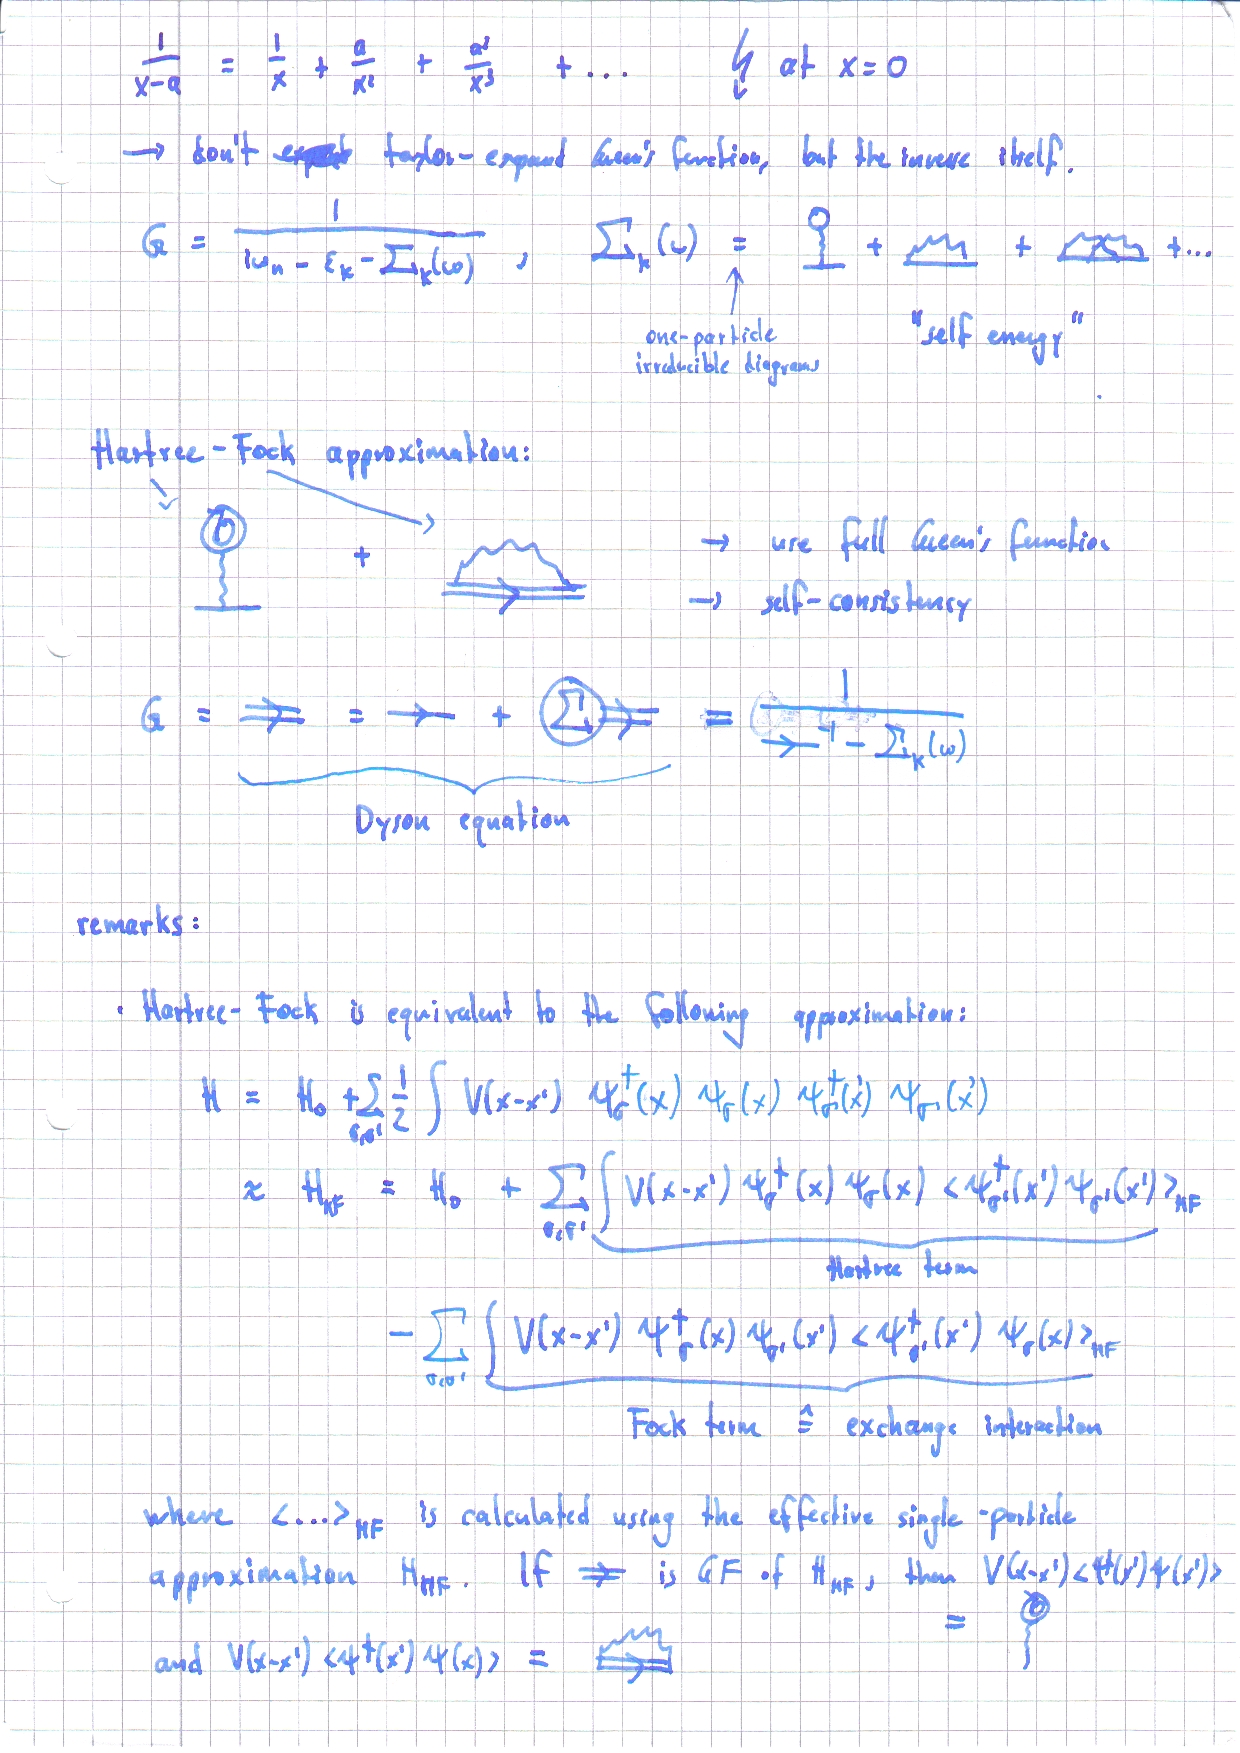 1/(x-a) = 1/x + a/x² + a²/x³ + ... ↯ at x=0
→ don't taylor-expand Green's function, but the inverse itself.
G = 1/(iωn - εk - Σk(ω)) , Σk(ω) = + + + ...
one-particle
irreducible diagrams
"self energy"
Hartree-Fock approximation:
+ → use full Green's function
→ self-consistency
G = ⇒ = → + Σ⇒ = 1/(→⁻¹ - Σk(ω))
Dyson equation
remarks:
· Hartree-Fock is equivalent to the following approximation:
H = H₀ + Σσ,σ' 1/2 ∫ V(x-x') ψσ†(x) ψσ(x) ψσ'†(x') ψσ'(x')
≈ HHF = H₀ + Σσ,σ' ∫ V(x-x') ψσ†(x) ψσ(x) <ψσ'†(x') ψσ'(x')>HF
Hartree term
- Σσ,σ' ∫ V(x-x') ψσ†(x) ψσ'(x') <ψσ'†(x') ψσ(x)>HF
Fock term ≙ exchange interaction
where <...>HF is calculated using the effective single-particle
approximation HHF. If ⇒ is GF of HHF, then V(x-x')<ψ†(x')ψ(x')>
=
and V(x-x') <ψ†(x') ψ(x)> =